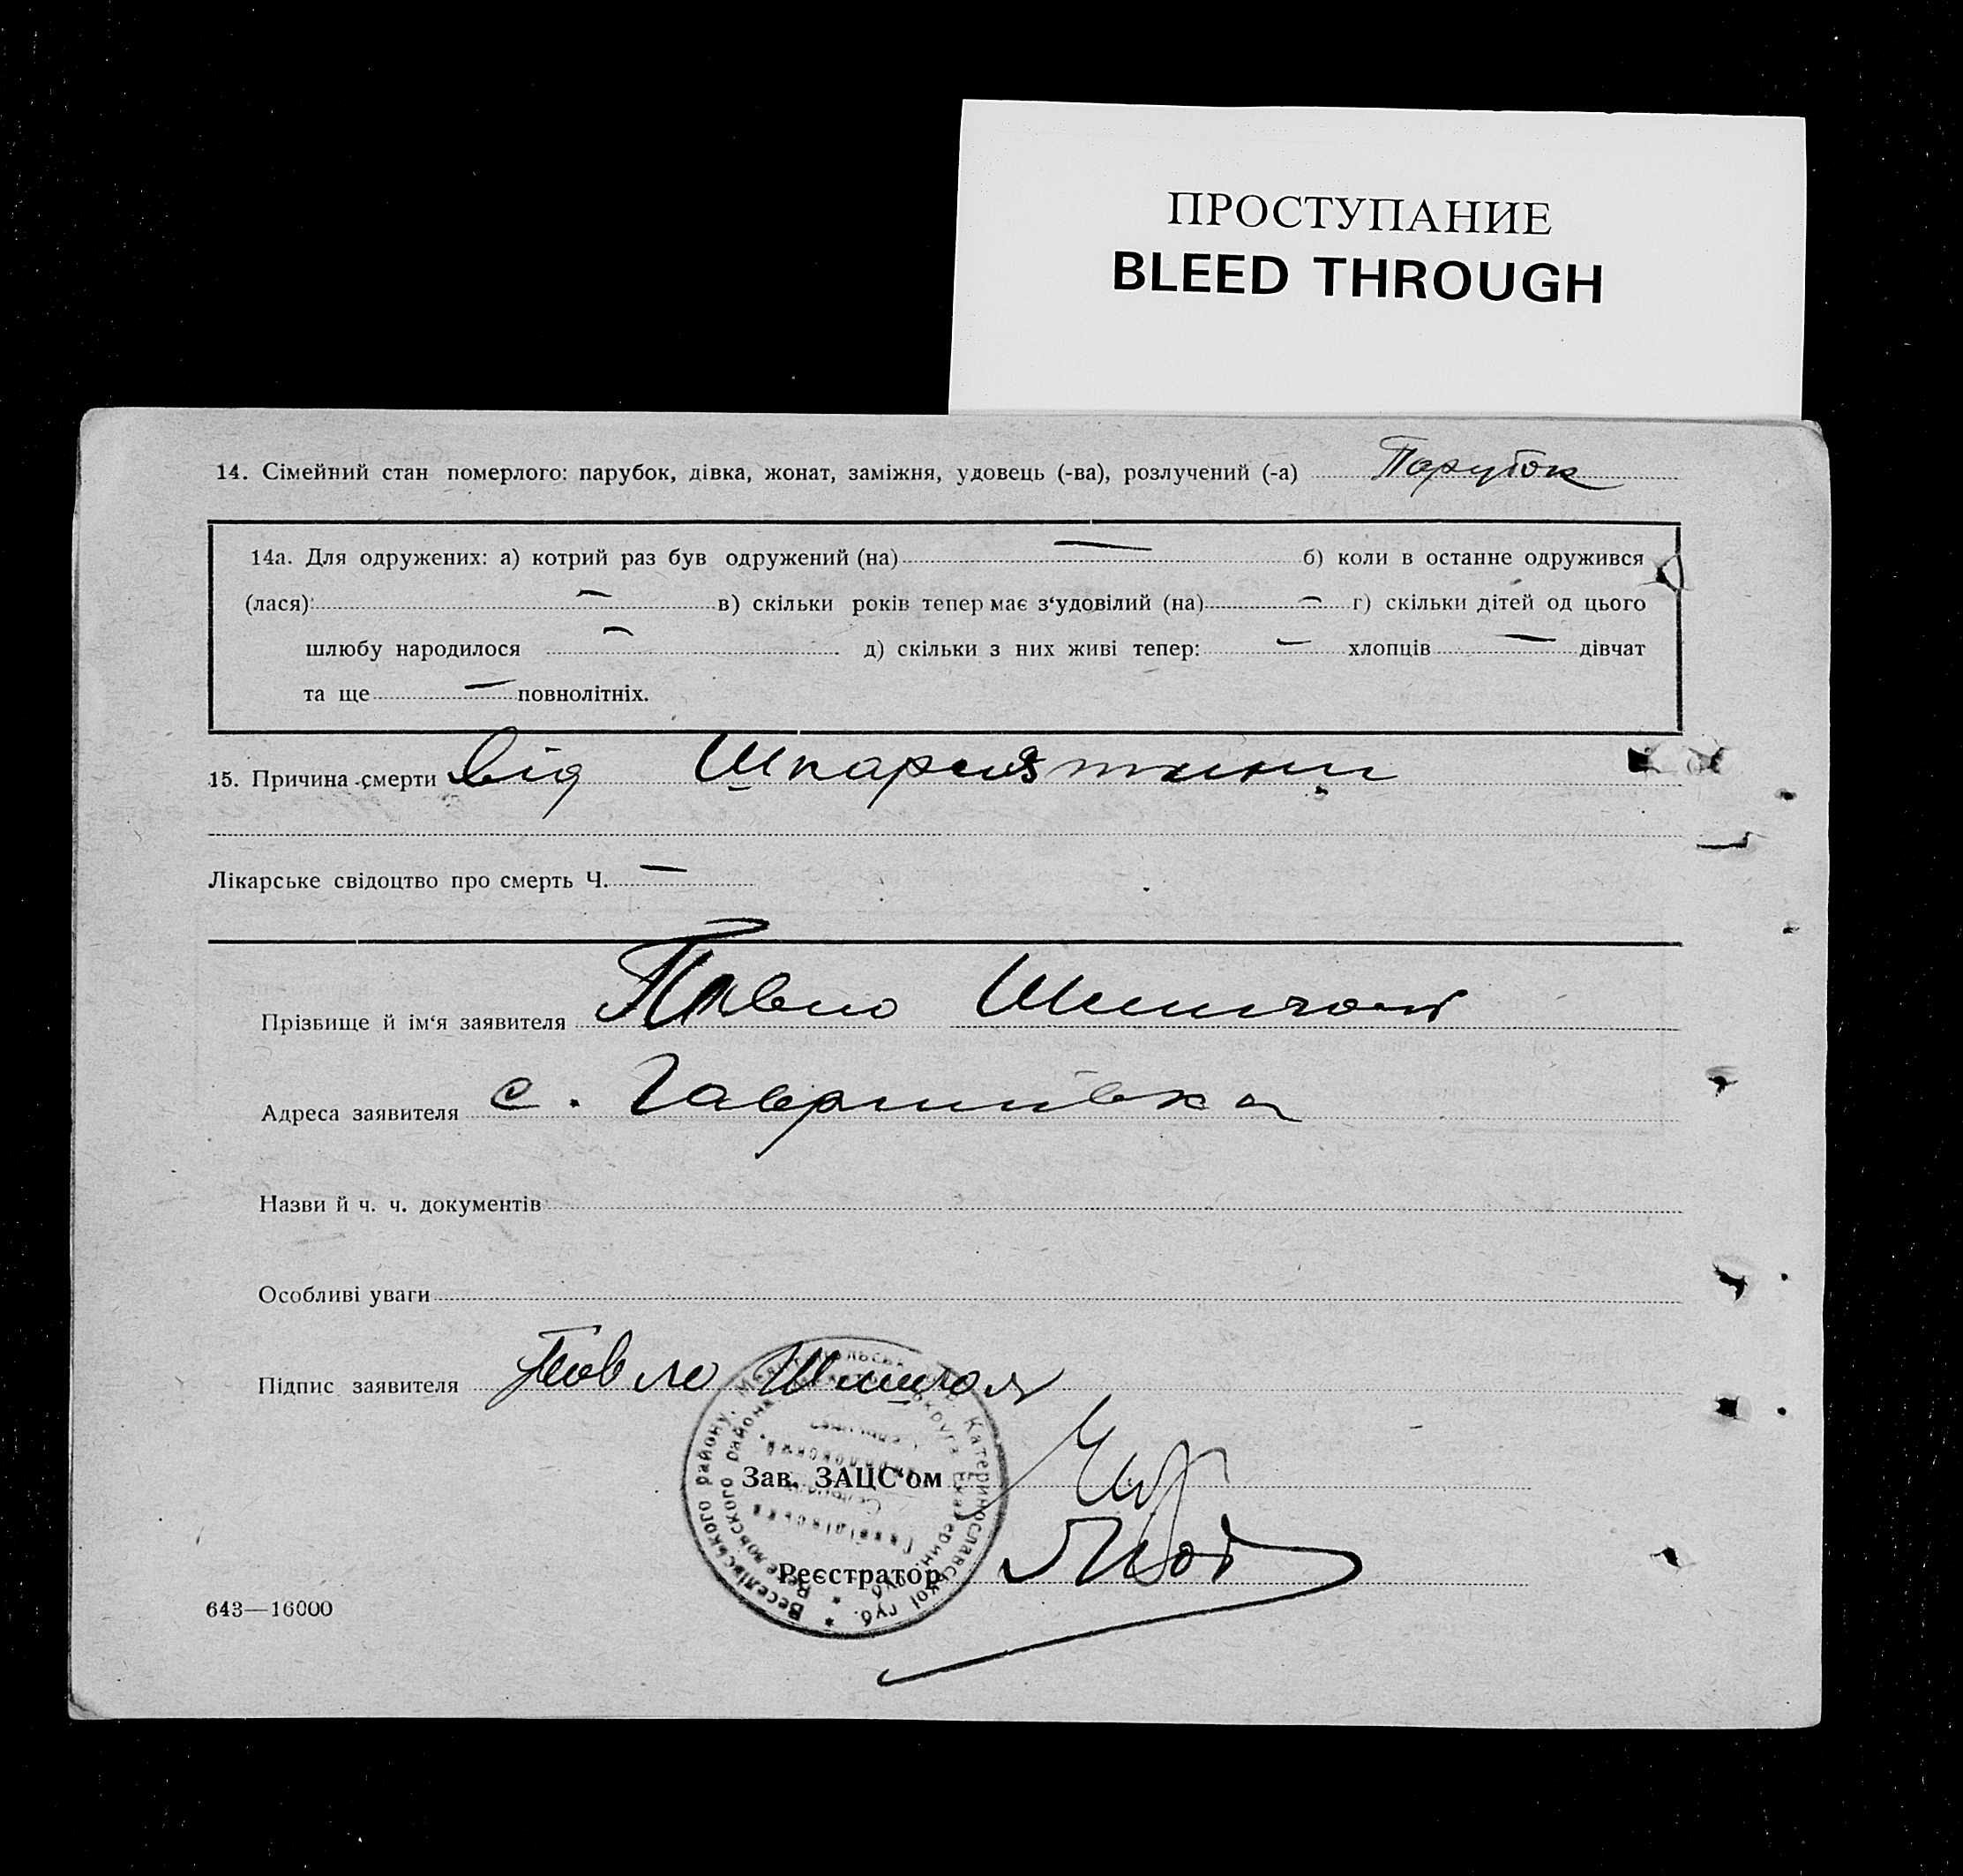 ПРОСТУПАНИЕ
BLEED THROUGH
14. Сімейний стан померлого: парубок, дівка, жонат, заміжня, удовець (-ва), розлучений (-а) Парубок
14а. Для одружених: а) котрий раз був одружений (на) — б) коли в останне одружився
(лася): — в) скільки років тепер має з‘удовілий (на) — г) скільки дітей од цього
шлюбу народилося — д) скільки з них живі тепер: — хлопців — дівчат
та ще — повнолітніх.
15. Причина смерти Від Шкарлятини
Лікарське свідоцтво про смерть Ч. —
Прізвище й ім‘я заявителя Павло
Адреса заявителя с. Гаврилівка
Назви й ч. ч. документів
Особливі уваги
Підпис заявителя Павло
Зав. ЗАЦС‘ом
Реєстратор
Веселівського району, Катеринославської губ.
643—16000